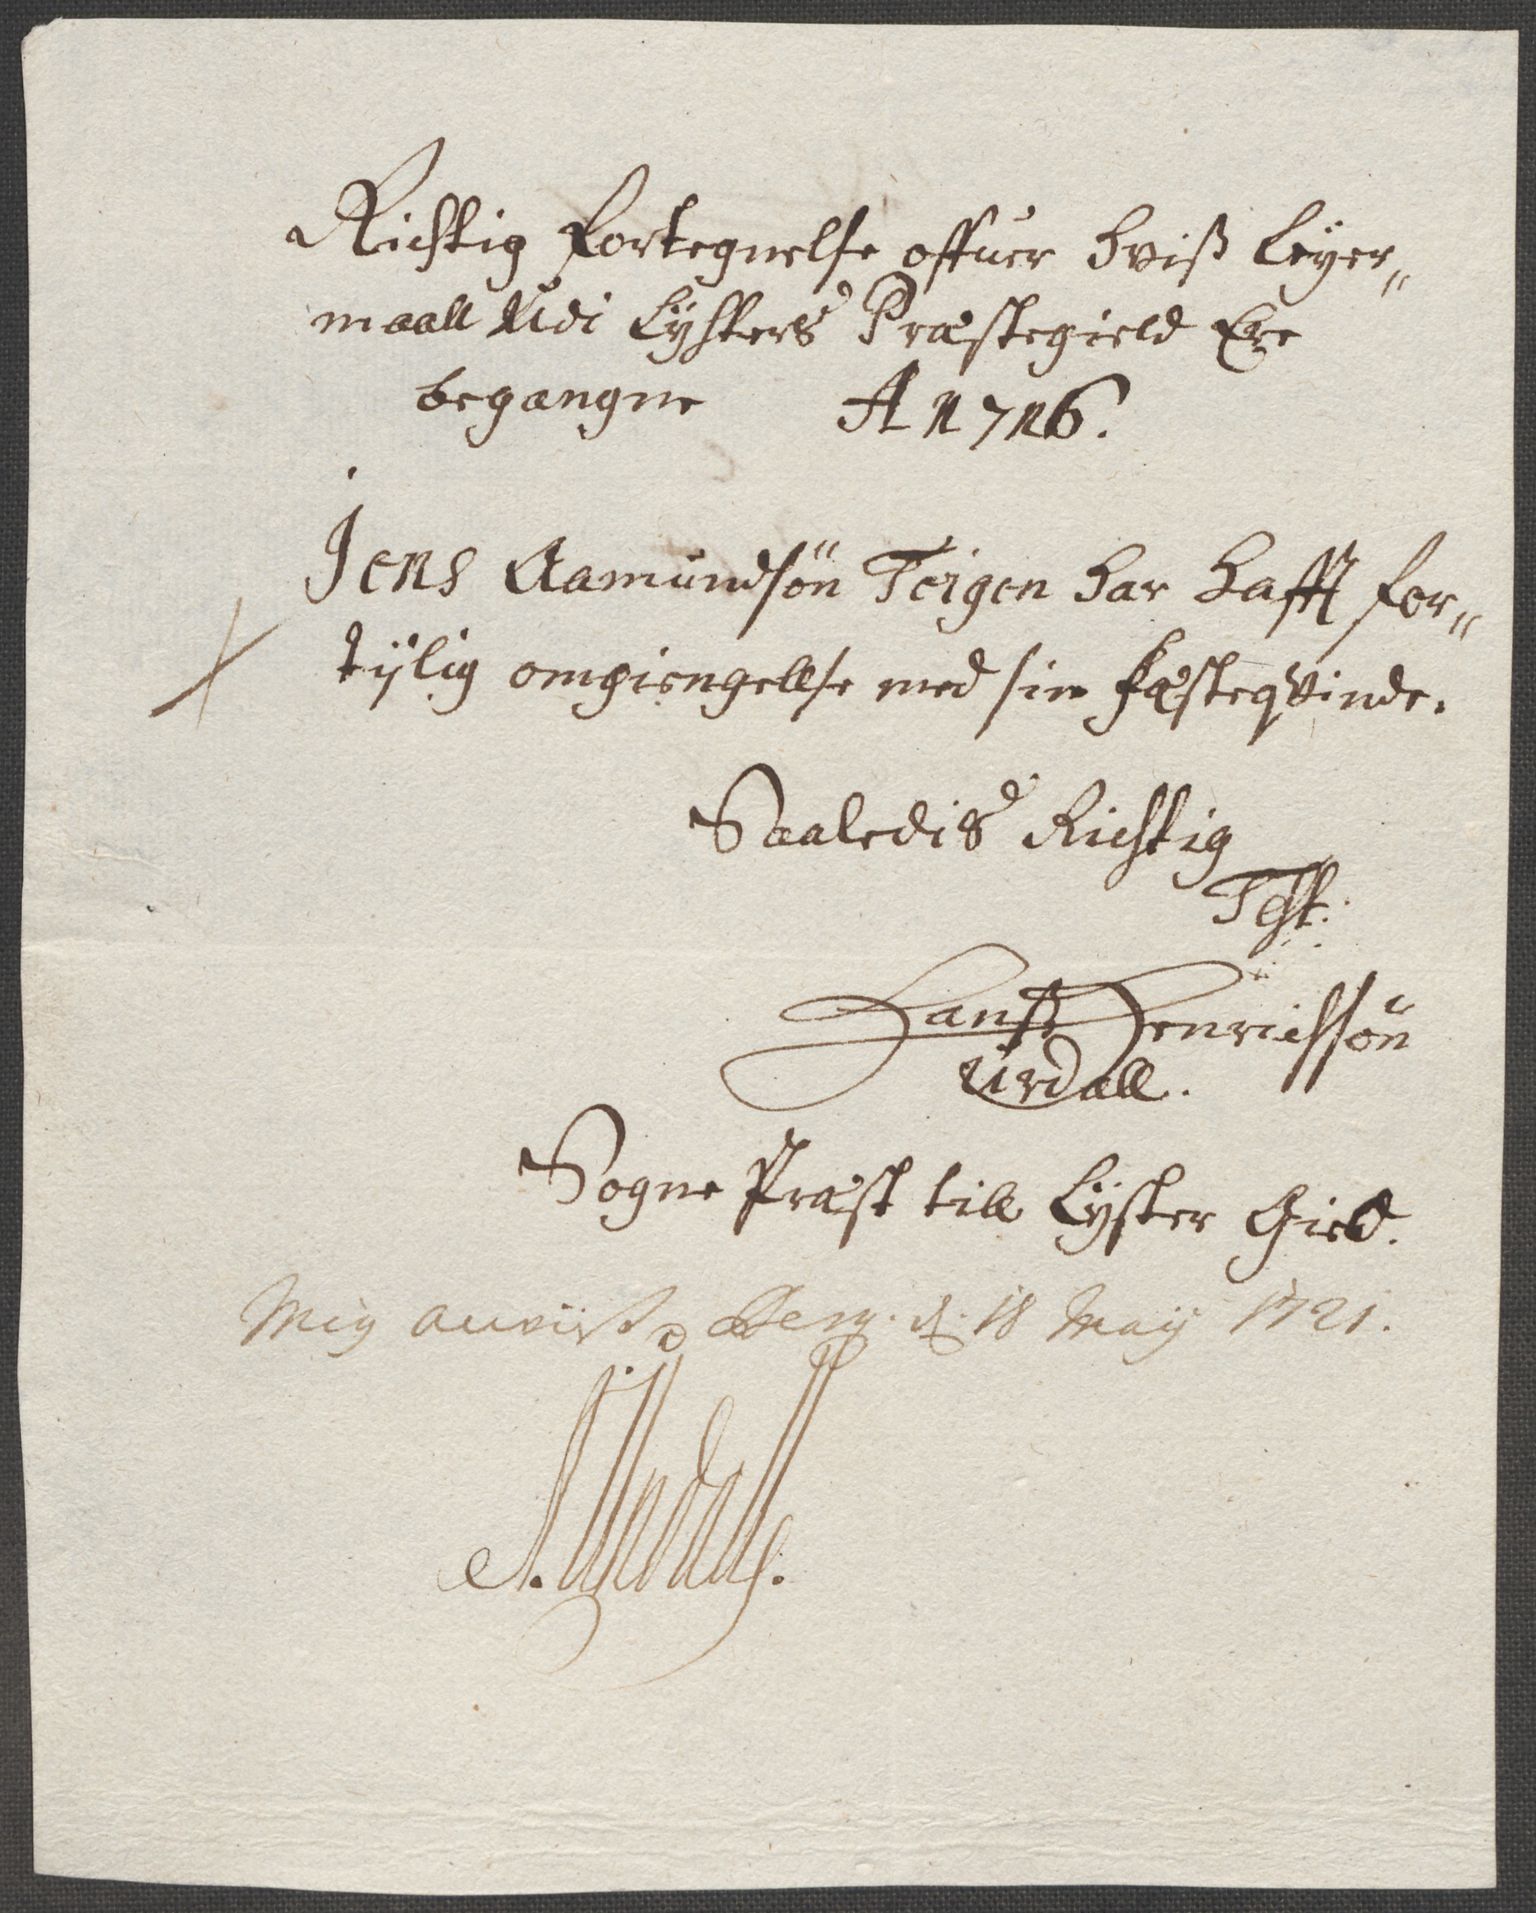 Richtig Fortegnelse offuer hviß Leyer„
maall Udi Lysters Præstegield Ere
begangne A 1716.
Jens Aamundsön Teigen har hafft for„
tijlig omgiengellse med sin Fæsteqvinde.
Saaledis Richtig
Test:
Hanß Henrichsön
Urdall.
Sogne Præst till Lyster Gield.
Mig anviist d. 18 Maij 1721.